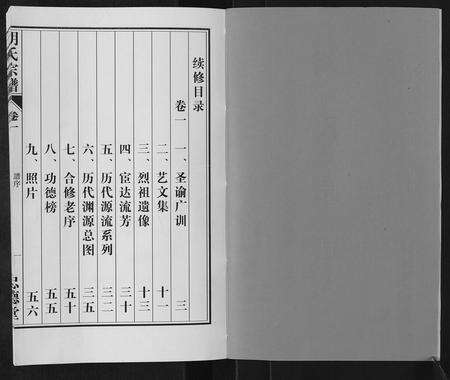 续修目录
卷一
一、圣谕广训 三
二、艺文集 十一
三、烈祖遗像 十三
四、宦达流芳 三十
五、历代源流系列 三二
六、历代渊源总图 三五
七、合修老序 五十
八、功德榜 五五
九、照片 五六
胡氏宗谱
卷一
谱序
一
忠德堂